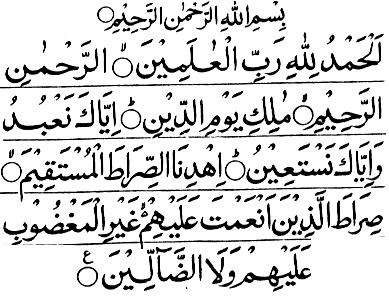 بِسْمِ اللهِ الرَّحْمٰنِ الرَّحِيْمِ
اَلْحَمْدُ لِلّٰهِ رَبِّ الْعٰلَمِيْنَ ۝ الرَّحْمٰنِ
الرَّحِيْمِ ۝ مٰلِكِ يَوْمِ الدِّيْنِ ۝ اِيَّاكَ نَعْبُدُ
وَاِيَّاكَ نَسْتَعِيْنُ ۝ اِهْدِنَا الصِّرَاطَ الْمُسْتَقِيْمَ ۝
صِرَاطَ الَّذِيْنَ اَنْعَمْتَ عَلَيْهِمْ غَيْرِ الْمَغْضُوْبِ
عَلَيْهِمْ وَلَا الضَّآلِّيْنَ ۝ع